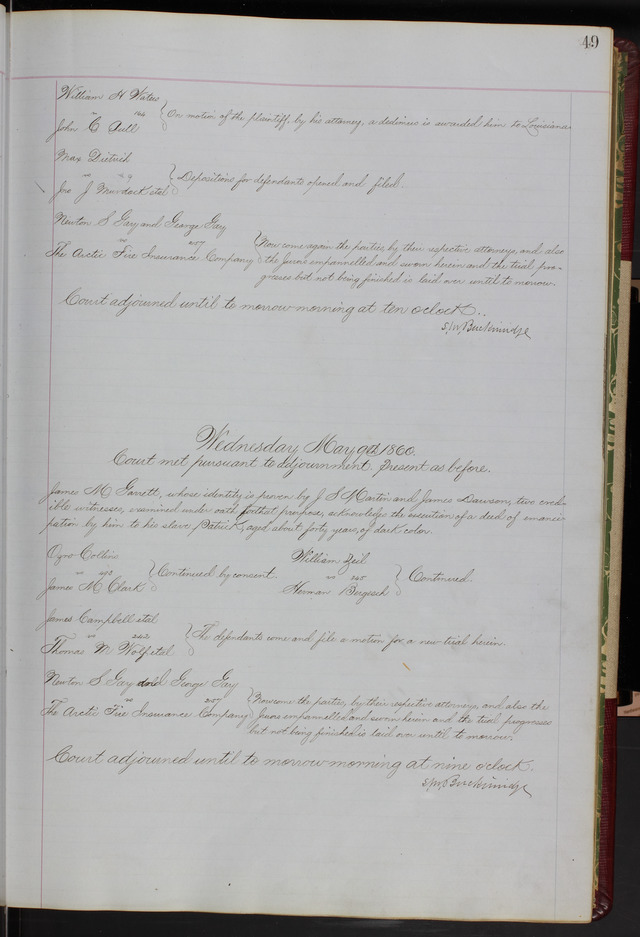 49
William H Wates
vs 164
John C Aull
On motion of the plaintiff, by his attorney, a dedimus is awarded him to Louisiana
Max Dietrich
vs 49
Jno J Murdock et al
Depositions for defendants opened and filed.
Newton S Gay and George Gay
vs 257
The Arctic Fire Insurance Company
Now come again the parties by their respective attorneys, and also
the Jurors empannelled and sworn herein and the trial pro-
gresses but not being finished is laid over until to morrow.
Court adjourned until to morrow morning at ten oclock.
S. M. Breckinridge
Wednesday May 9th 1860.
Court met pursuant to adjournment. Present as before.
James M Garrett, whose identity is proven by J S Martin and James Dawson, two cred-
ible witnesses, examined under oath for that purpose, acknowledges the execution of a deed of emanci-
pation by him to his slave Patrick, aged about forty years, of dark color.
Cyro Collins
vs
James M Clark
Continued by consent.
William Zeil
vs 245
Herman Bergesch
Continued.
James Campbell et al
vs 242
Thomas M Wolf et al
The defendants come and file a motion for a new trial herein.
Newton S. Gay and George Gay
vs 257
The Arctic Fire Insurance Company
Now come the parties, by their respective attorneys, and also the
Jurors empannelled and sworn herein and the trial progresses
but not being finished is laid over until to morrow.
Court adjourned until to morrow morning at nine oclock.
S. M. Breckinridge